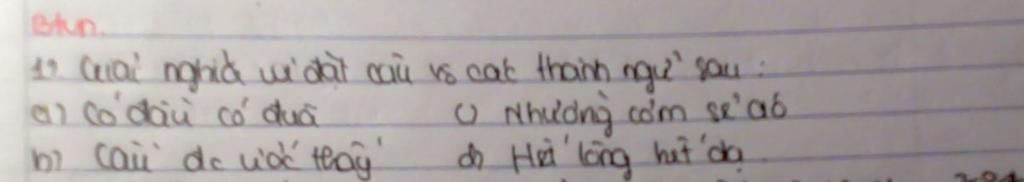 Btvn.
1, Giải nghĩa và đặt câu vs các thành ngữ sau:
a) Có đầu có đuôi c) Nhường cơm sẻ áo
b) Cầu đc ước thấy d) Hết lòng hết dạ